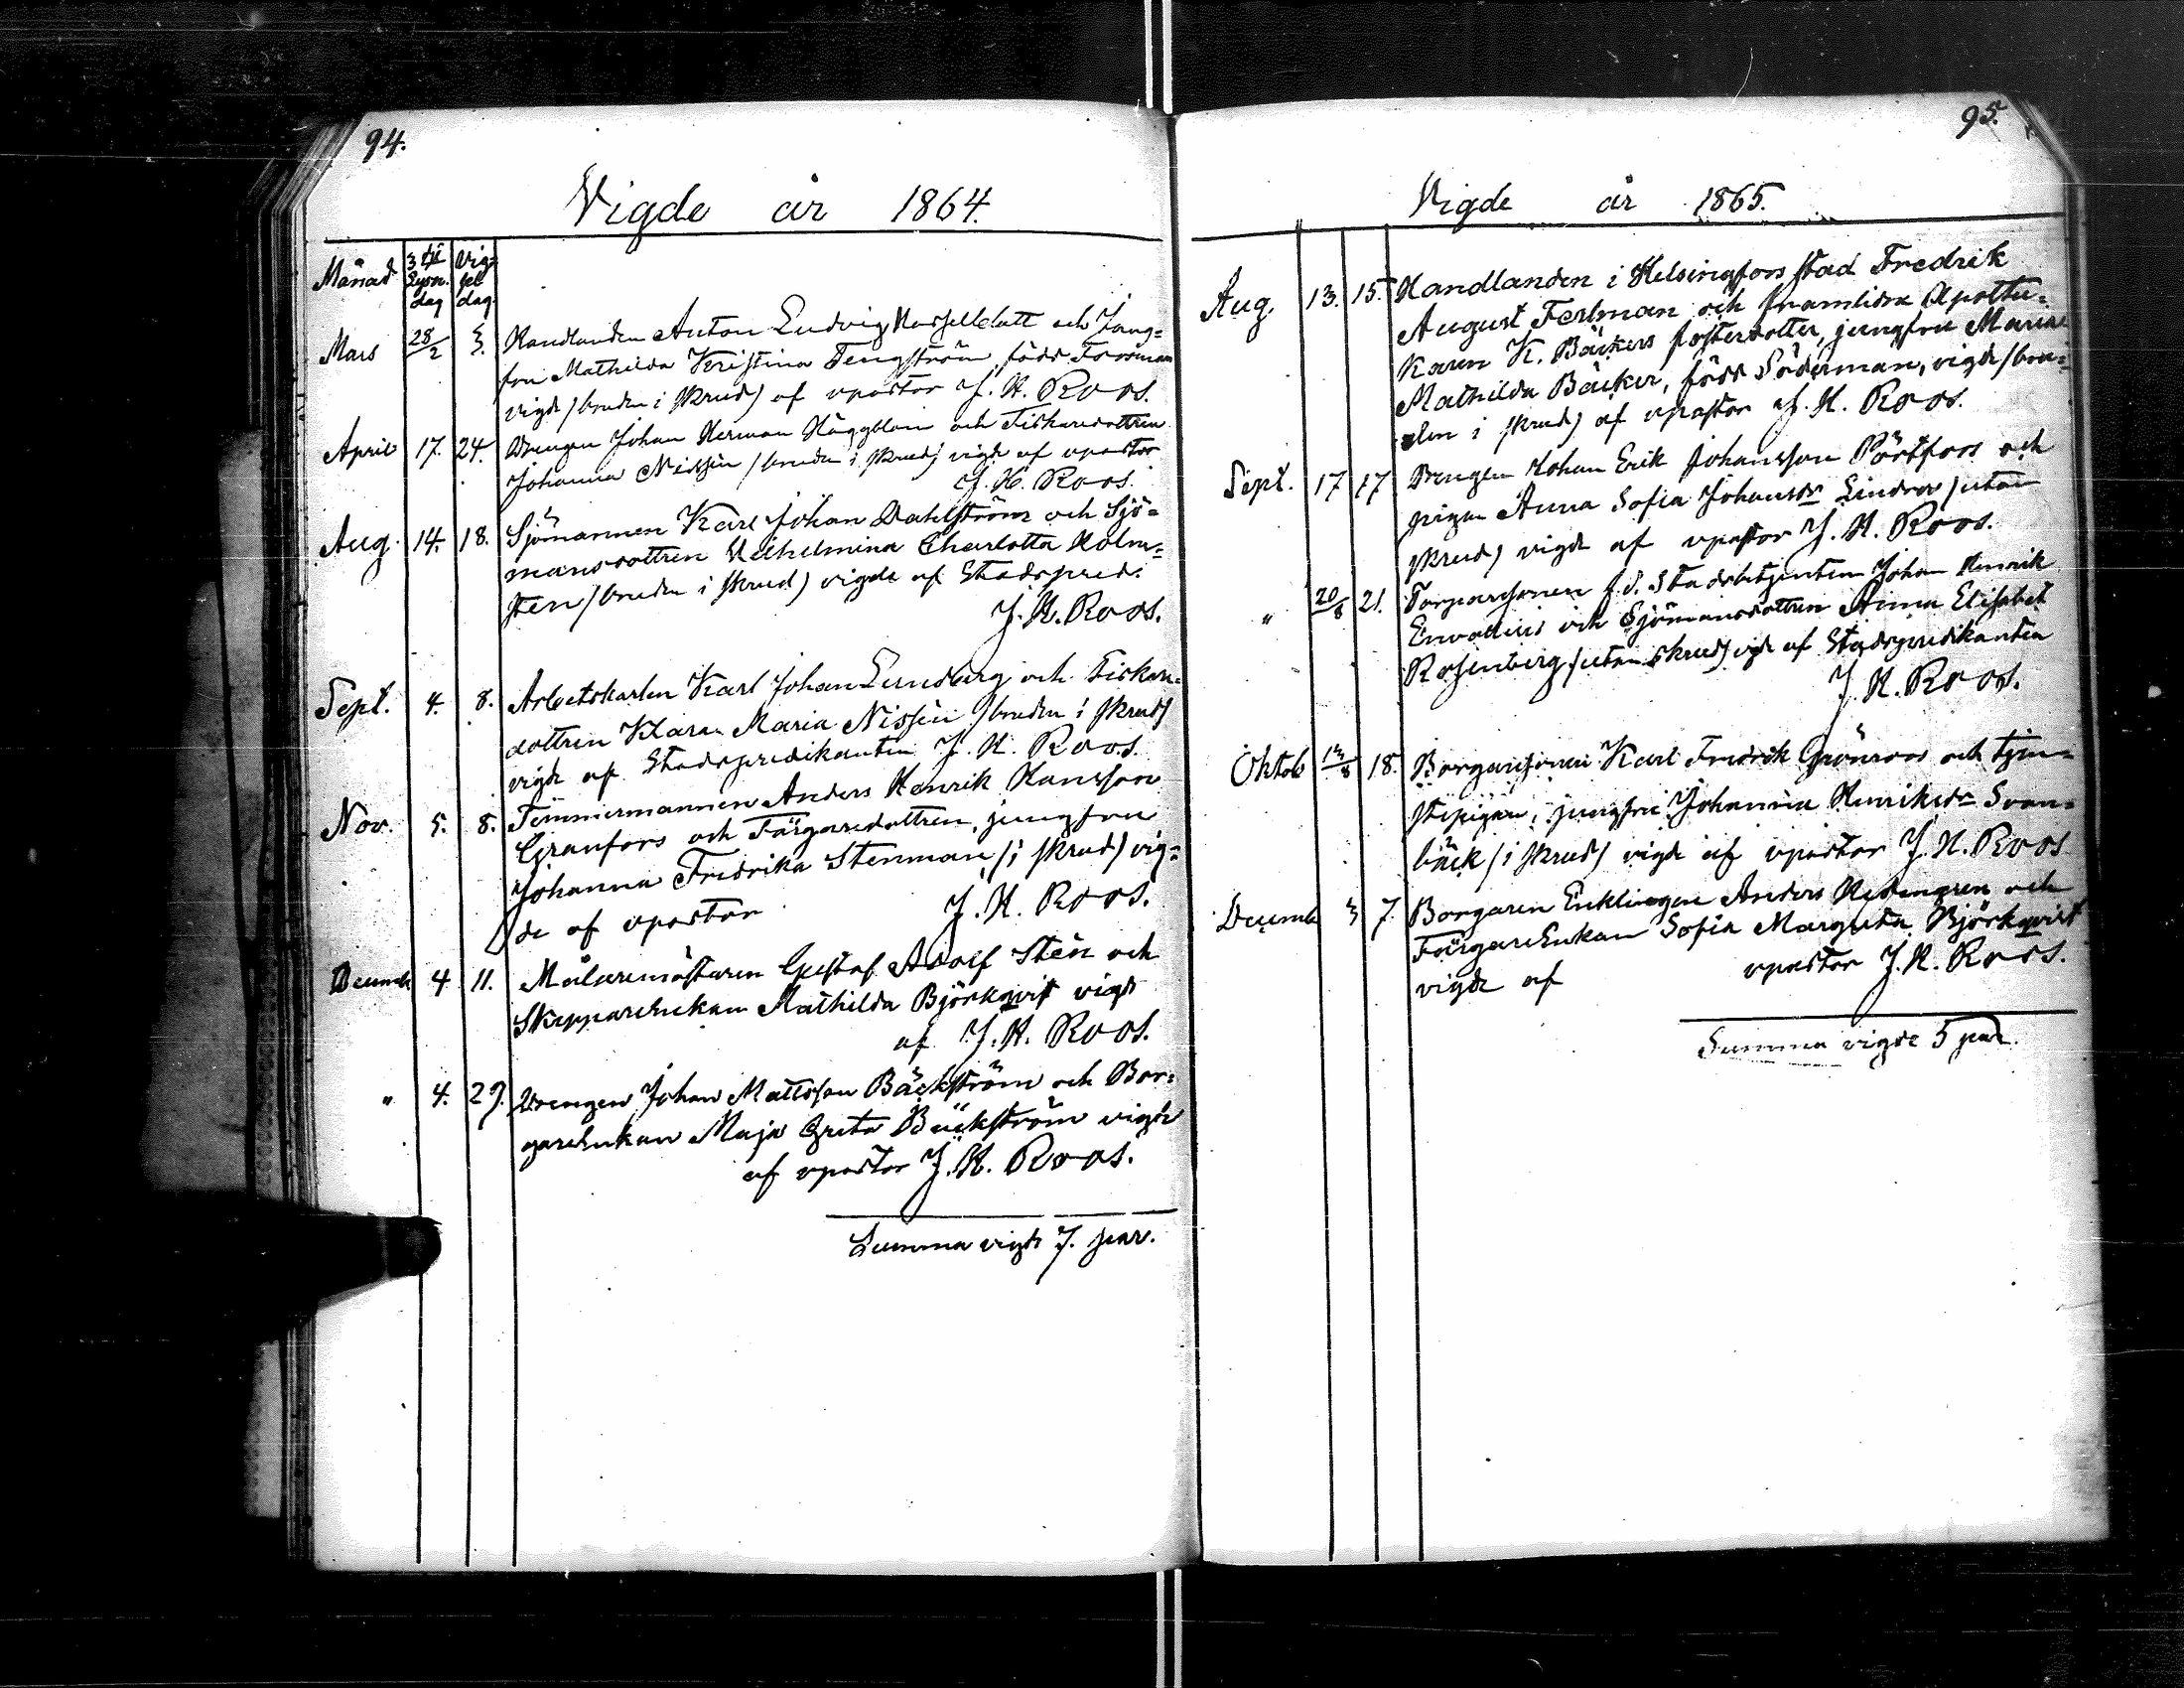 94.
Vigde år 1864.
Månad 3dje Lysn. dag Vigsel dag.
Mars 28/2 3. Handlanden Anton Ludvig Hasselblatt och Jung=
frun Mathilda Kristina Tengström, född Forsman
vigde /bruden i skrud/ af vpastor J. H. Roos.
April 17. 24. Drengen Johan Herman Häggblom och Fiskaredottren
Johanna Nissén /bruden i skrud/ vigde af vpastor
J. H. Roos.
Aug. 14. 18. Sjömannen Karl Johan Dahlström och Sjö=
mansdottren Vilhelmina Charlotta Holm=
sten /bruden i skrud/ vigde af Stadspred.
J. H. Roos.
Sept. 4. 8. Arbetskarlen Karl Johan Lundberg och Fiskare=
dottren Klara Maria Nissén /bruden i skrud/
vigde af Stadspredikanten J. H. Roos.
Nov. 5. 8. Timmermannen Anders Henrik Hansson
Granfors och Färgaredottren, jungfrun
Johanna Fredrika Stenman /i skrud/ vig=
de af vpastor J. H. Roos.
Decemb 4 11. Målaremästaren Gustaf Adolf Stén och
Skeppareenkan Mathilda Björkqvist vigde
af J. H. Roos.
" 4. 27. Drengen Johan Mattsson Bäckström och Bor=
gareenkan Maja Greta Bäckström vigde
af vpastor J. H. Roos.
Summa vigde 7. par.
95.
Vigde år 1865.
Aug. 13. 15. Handlanden i Helsingfors stad Fredrik
August Ferlman och framlidne Apothe=
karen K. Bäckers fosterdotter, jungfru Maria
Mathilda Bäcker, född Söderman, vigde /bru=
den i skrud/ af vpastor J. H. Roos.
Sept. 17 17 Drengen Johan Erik Johansson Pörtfors och
pigan Anna Sofia Johansdr Lindros /utan
skrud/ vigde af vpastor J. H. Roos.
" 20/8 21. Torparsonen f.d. Stadsbetjenten Johan Henrik
och Sjömansdottren Anna Elisabet
Rosenberg /utan skrud/ vigde af Stadspredikanten
J. H. Roos.
Oktob 13/8 18. Borgaresonen Karl Fredrik Grönroos och tjen=
stepigan, jungfru Johanna Henriksdr Svan=
bäck /i skrud/ vigde af vpastor J. H. Roos
Decemb 3 7. Borgaren Enklingen Anders Hedengren och
FärgareEnkan Sofia Margreta Björkqvist
vigde af vpastor J. H. Roos.
Summa vigde 5 par.